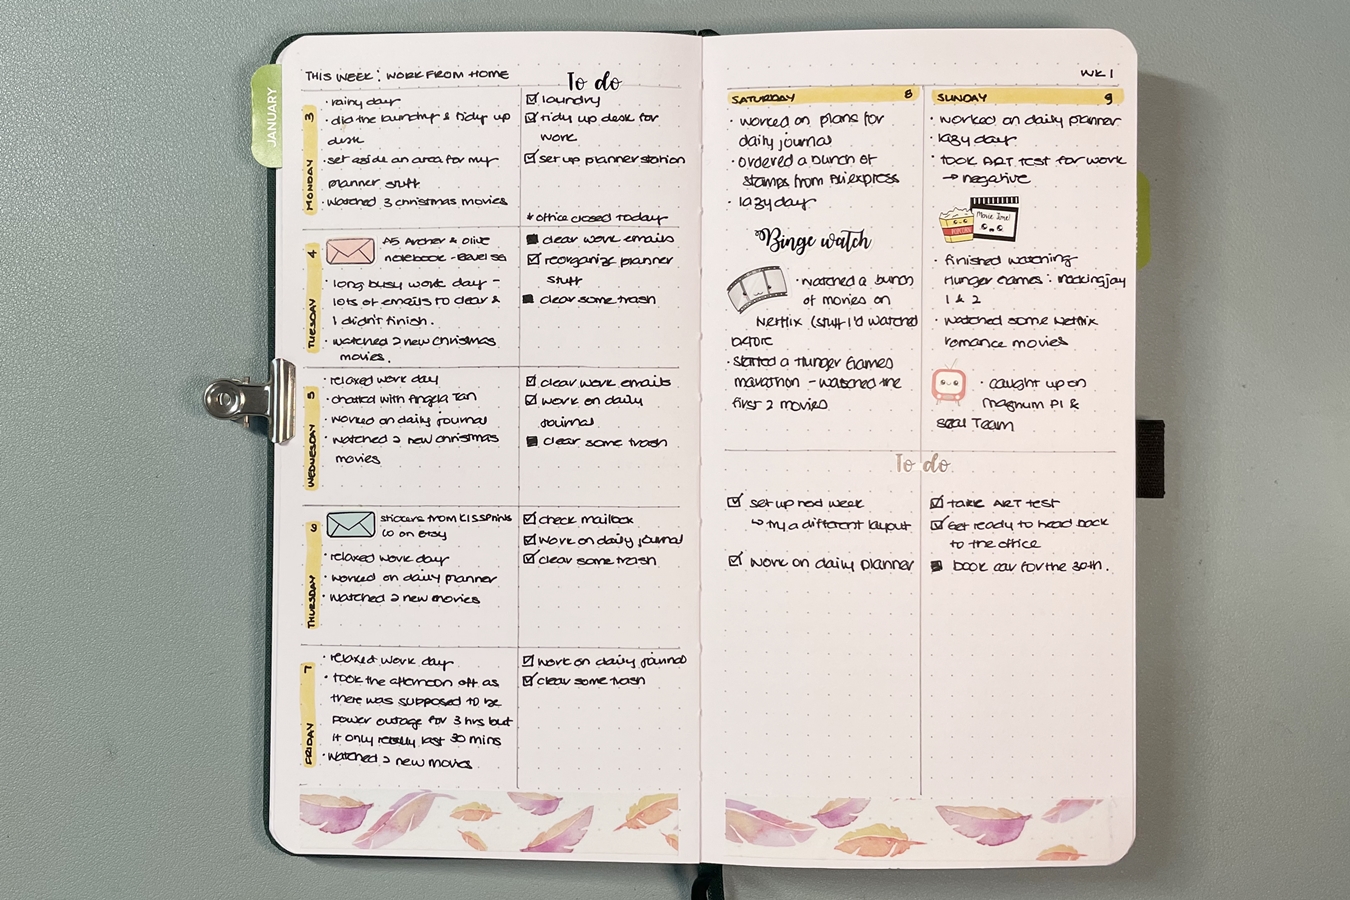 THIS WEEK: WORK FROM HOME
To do
JANUARY
MONDAY 3
· rainy day
· did the laundry & tidy up
desk
· set aside an area for my
planner stuff
· watched 3 christmas movies
☑ laundry
☑ tidy up desk for
work
☑ set up planner station
* office closed today
TUESDAY 4
A5 Archer & Olive
notebook -
· long busy work day -
lots of emails to clear &
I didn't finish.
· watched 2 new christmas
movies.
■ clear work emails
☑ reorganize planner
stuff
■ clear some trash
WEDNESDAY 5
· relaxed work day
· chatted with Angela Tan
· worked on daily journal
· watched 2 new christmas
movies
☑ clear work emails
☑ work on daily
journal
■ clear some trash
THURSDAY 6
stickers from KISSPrints
Co on etsy
· relaxed work day
· worked on daily planner
· watched 2 new movies
☑ check mailbox
☑ work on daily journal
☑ clear some trash
FRIDAY 7
· relaxed work day
· took the afternoon off as
there was supposed to be
power outage for 3 hrs but
it only really last 30 mins
· watched 2 new movies
☑ work on daily journal
☑ clear some trash
WK 1
SATURDAY 8
· worked on plans for
daily journal
· ordered a bunch of
stamps from Aliexpress
· lazy day
Binge watch
· watched a bunch
of movies on
Netflix (stuff I'd watched
before
· started a Hunger Games
marathon - watched the
first 2 movies
SUNDAY 9
· worked on daily planner
· lazy day
· took ART test for work
→ negative
POPCORN
Movie Time!
· finished watching
Hunger Games: Mockingjay
1 & 2
· watched some Netflix
romance movies
· caught up on
Magnum PI &
Seal Team
To do
☑ set up next week
↳ try a different layout
☑ work on daily planner
☑ take ART test
☑ Get ready to head back
to the office
■ book car for the 30th.